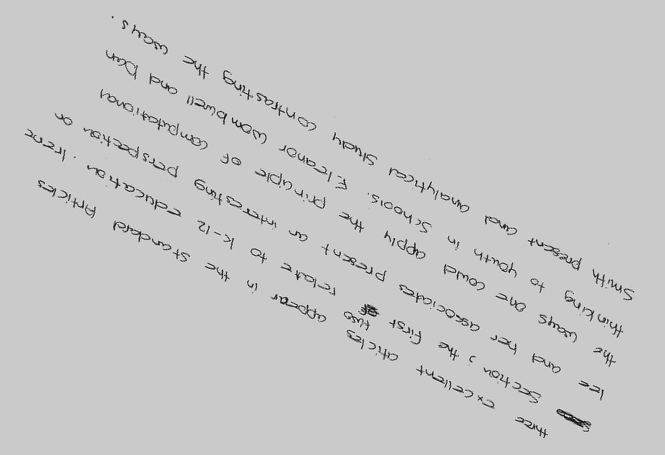 three excellent aticles appear in the standard Articles
section; the first two relate to K-12 education. Irene
lee and her associates present an interesting perspection on
the ways one could apply the principle of computational
thinking to youth in schools. Eleanor Wombwell and Dan
Smith present and analytical study contrasting the ways.